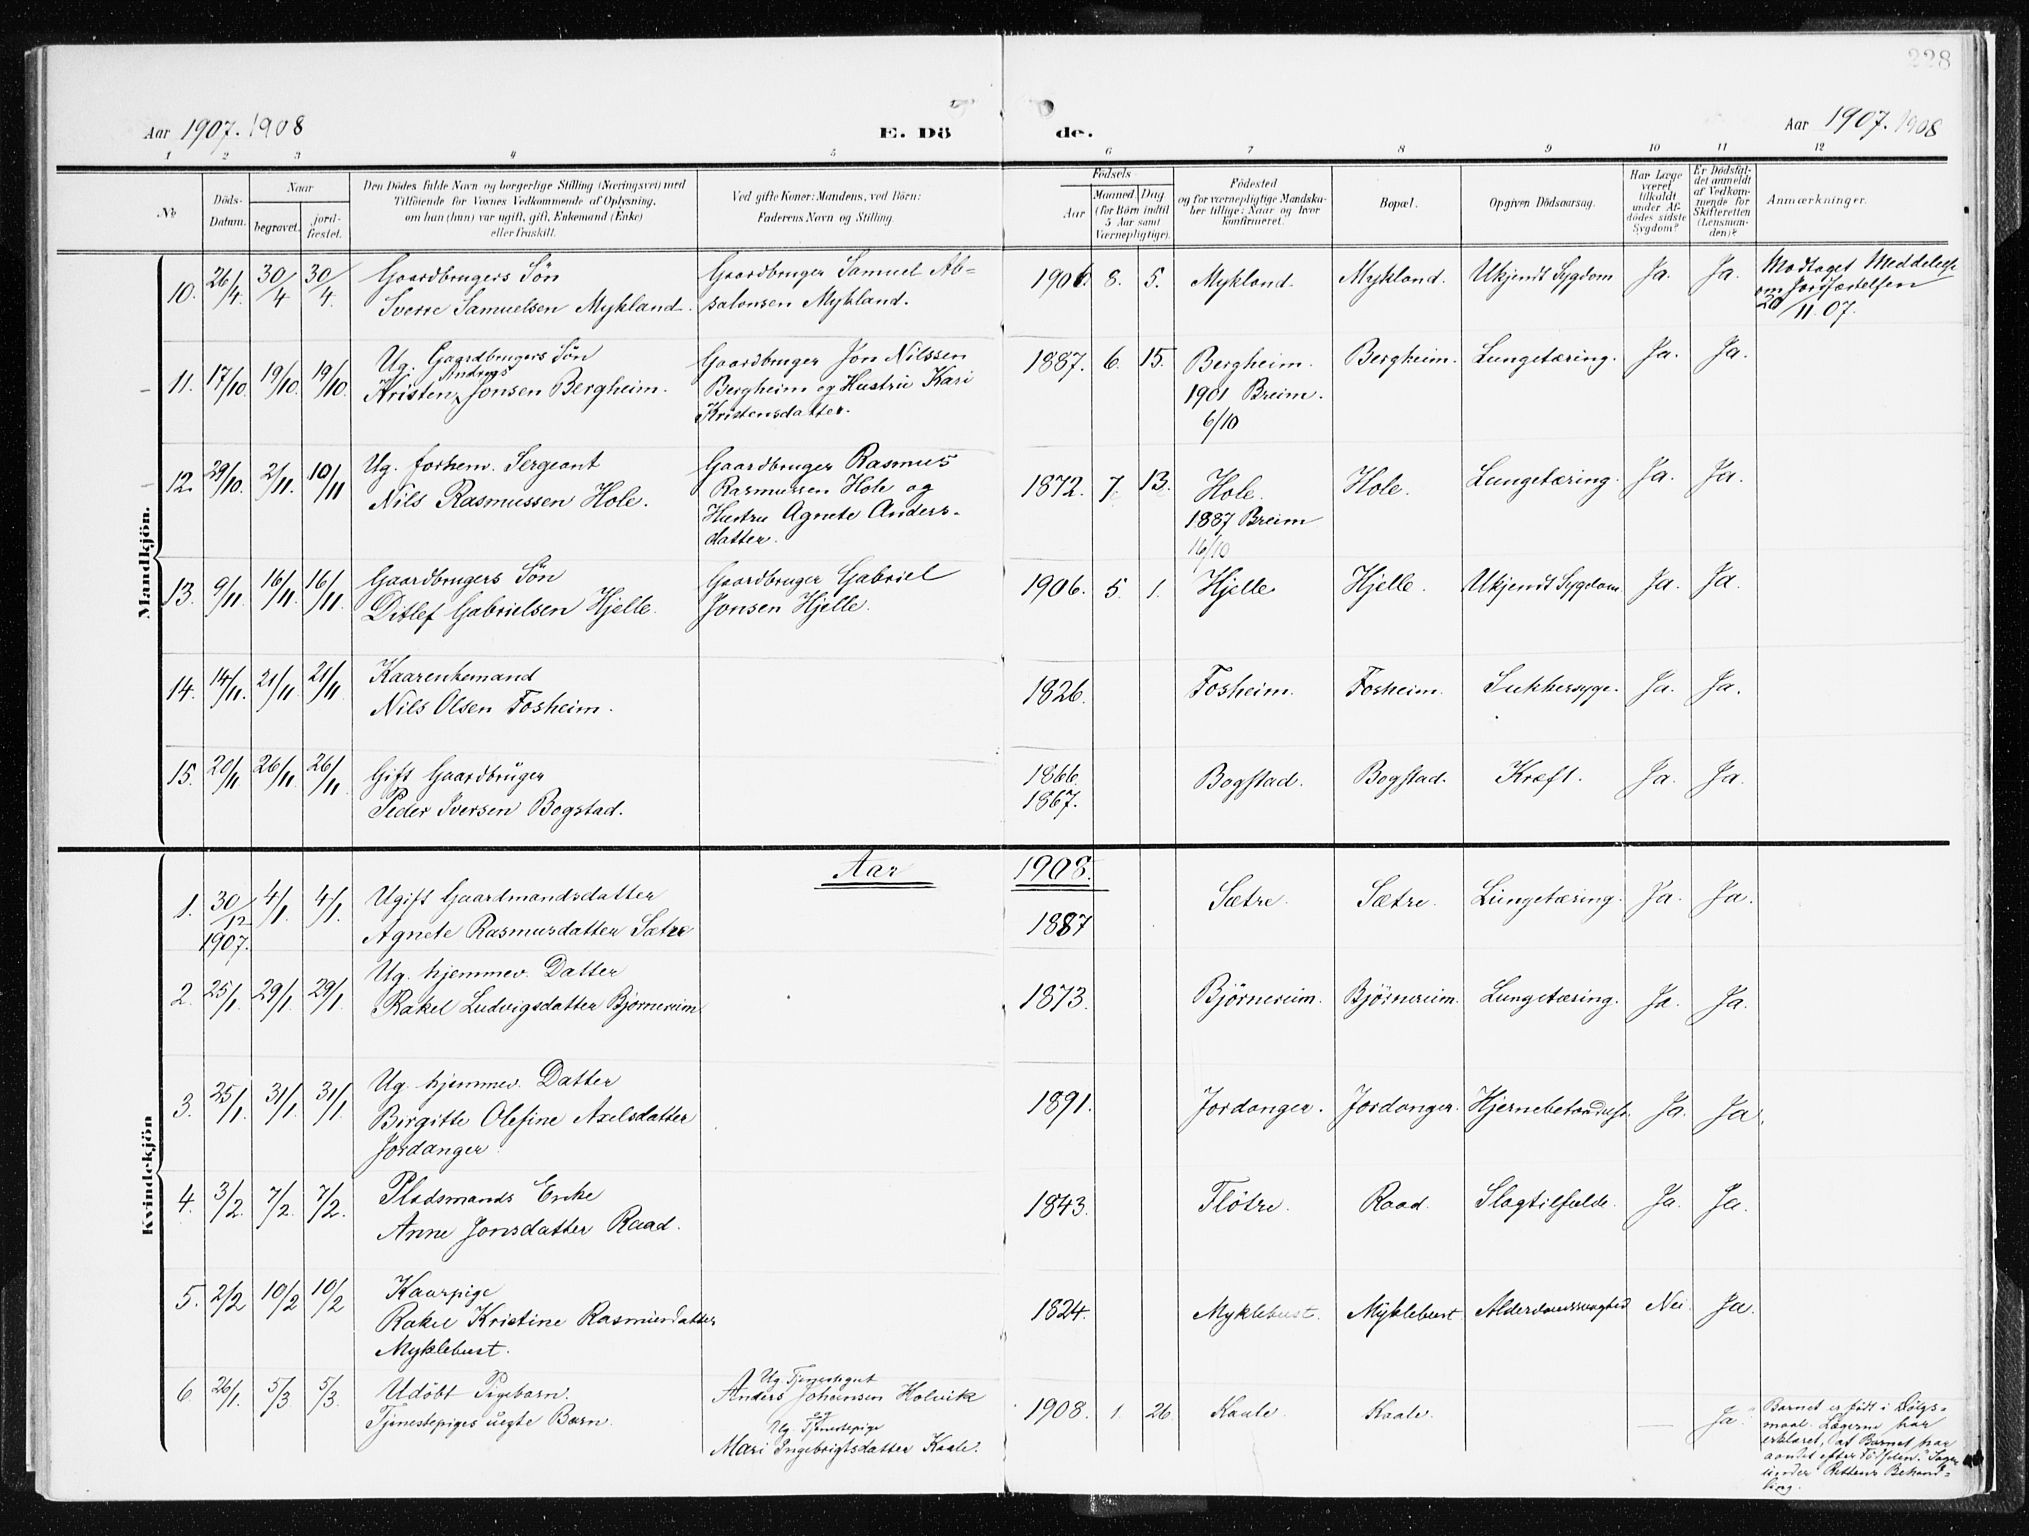 228
Aar 1907. 1908
E. Dö
de.
Aar 1907. 1908
1 2 3 4 5 6 7 8 9 10 11 12
No
Döds-
Datum.
Naar
begravet.
jord-
fæstet.
Den Dödes fulde Navn og borgerlige Stilling (Næringsvei) med
Tilföiende for Voxnes Vedkommende af Oplysning,
om han (hun) var ugift, gift, Enkemand (Enke)
eller fraskilt.
Ved gifte Koner: Mandens, ved Börn:
Faderens Navn og Stilling.
Födsels
Aar
Maaned Dag
(for Börn indtil
5 Aar samt
Værnepligtige).
Födested
og for værnepligtige Mandska-
ber tillige: Naar og hvor
konfirmeret.
Bopæl.
Opgiven Dödsaarsag.
Har Læge
været
tilkaldt
under Af-
dödes sidste
Sygdom?
Er Dödsfal-
det anmeldt
af Vedkom-
mende for
Skifteretten
(Lensman-
den)?
Anmærkninger.
Mandkjön.
10. 26/4. 30/4 30/4. Gaardbrugers Søn
Sverre Samuelsen Mykland.
Gaardbruger Samuel Ab-
salonsen Mykland.
1906. 8. 5. Mykland. Mykland. Ukjendt Sygdom Ja. Ja.
Modtaget Meddelelse
om Jordfæstelsen
20/11 07.
11. 17/10. 19/10. 19/10. Ug. Gaardbrugers Søn
Andreas
Kristen Jonsen Bergheim.
Gaardbruger Jon Nilssen
Bergheim og Hustru Kari
Kristensdatter.
1887. 6. 15. Bergheim. Bergheim. Lungetæring. Ja. Ja.
1901 Breim.
6/10
12. 29/10. 2/11. 10/11 Ug. forhenv. Sergeant
Nils Rasmussen Hole.
Gaardbruger Rasmus
Rasmussen Hole og
Hustru Agnete Anders-
datter.
1872. 7. 13. Hole. Hole. Lungetæring. Ja. Ja.
1887 Breim
16/10
13. 9/11. 16/11. 16/11. Gaardbrugers Søn
Ditlef Gabrielsen Hjelle.
Gaardbruger Gabriel
Jonsen Hjelle.
1906. 5. 1. Hjelle Hjelle. Ukjendt Sygdom Ja. Ja.
14. 14/11. 21/11. 21/11. Kaarenkemand
Nils Olsen Fosheim.
1826. Fosheim. Fosheim. Sukkersyge. Ja. Ja.
15. 20/11 26/11 26/11. Gift Gaardbruger
Peder Iversen Bogstad.
1866
1867. Bogstad. Bogstad. Kræft. Ja. Ja.
Kvindekjön
Aar 1908.
1. 30/12 1907. 4/1. 4/1. Ugift Gaardmandsdatter
Agnete Rasmusdatter Sætre
1887 Sætre. Sætre. Lungetæring. Ja. Ja.
2. 25/1. 29/1. 29/1. Ug. hjemmev. Datter
Rakel Ludvigsdatter Bjørnereim
1873. Bjørnereim. Bjørnereim. Lungetæring. Ja. Ja.
3. 25/1. 31/1. 31/1 Ug. hjemmev. Datter
Birgitte Olefine Axelsdatter
Jordanger.
1891. Jordanger. Jordanger. Hjernebetændelse Ja. Ja.
4. 3/2. 7/2. 7/2. Pladsmands Enke
Anne Jonsdatter Raad.
1843. Fløtre. Raad. Slagtilfælde. Ja. Ja.
5. 2/2 10/2 10/2 Kaarpige
Rakel Kristine Rasmusdatter
Myklebust.
1824. Myklebust. Myklebust. Alderdomssvaghed Nei. Ja.
6. 26/1. 5/3 5/3. Udøbt Pigebarn.
Tjenestepiges uegte Barn.
Ug. Tjenestegut
Anders Johansen Holvik
og
Ug. Tjenestepige
Mari Ingebrigtsdatter Kaale.
1908. 1. 26. Kaale. Kaale. — Ja.
Barnet er født i Dølgs-
maal. Lægerne har
erklæret, at Barnet har
aandet efter Fødslen. Sagen
under Rettens Behand-
ling.